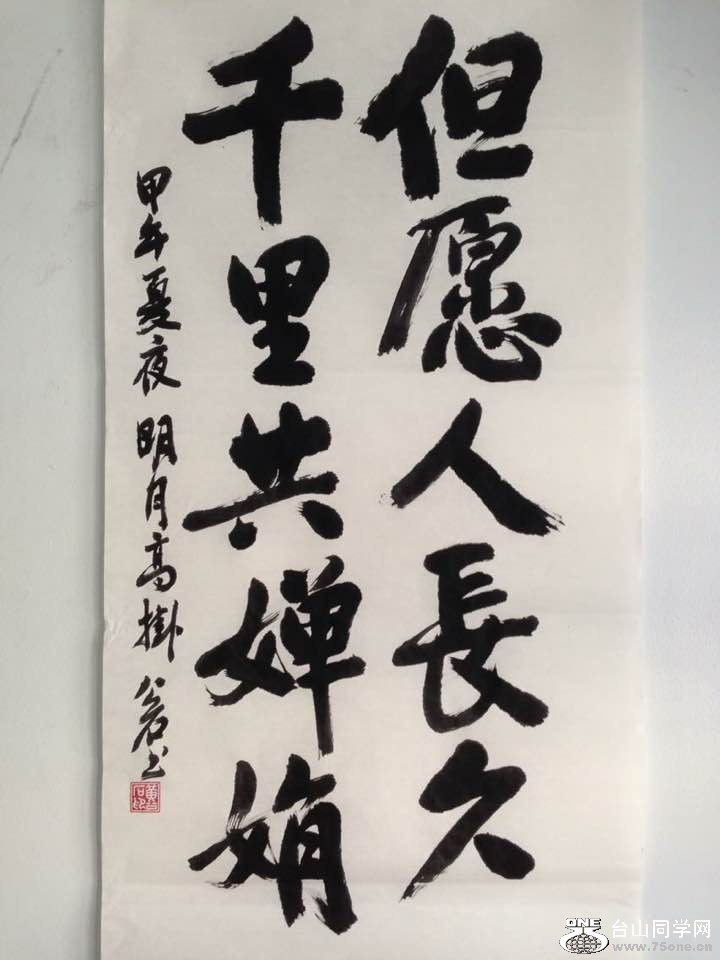 但愿人長久
千里共婵娟
甲午夏夜 明月高掛 书
ONE
台山同学网
www.75one.com